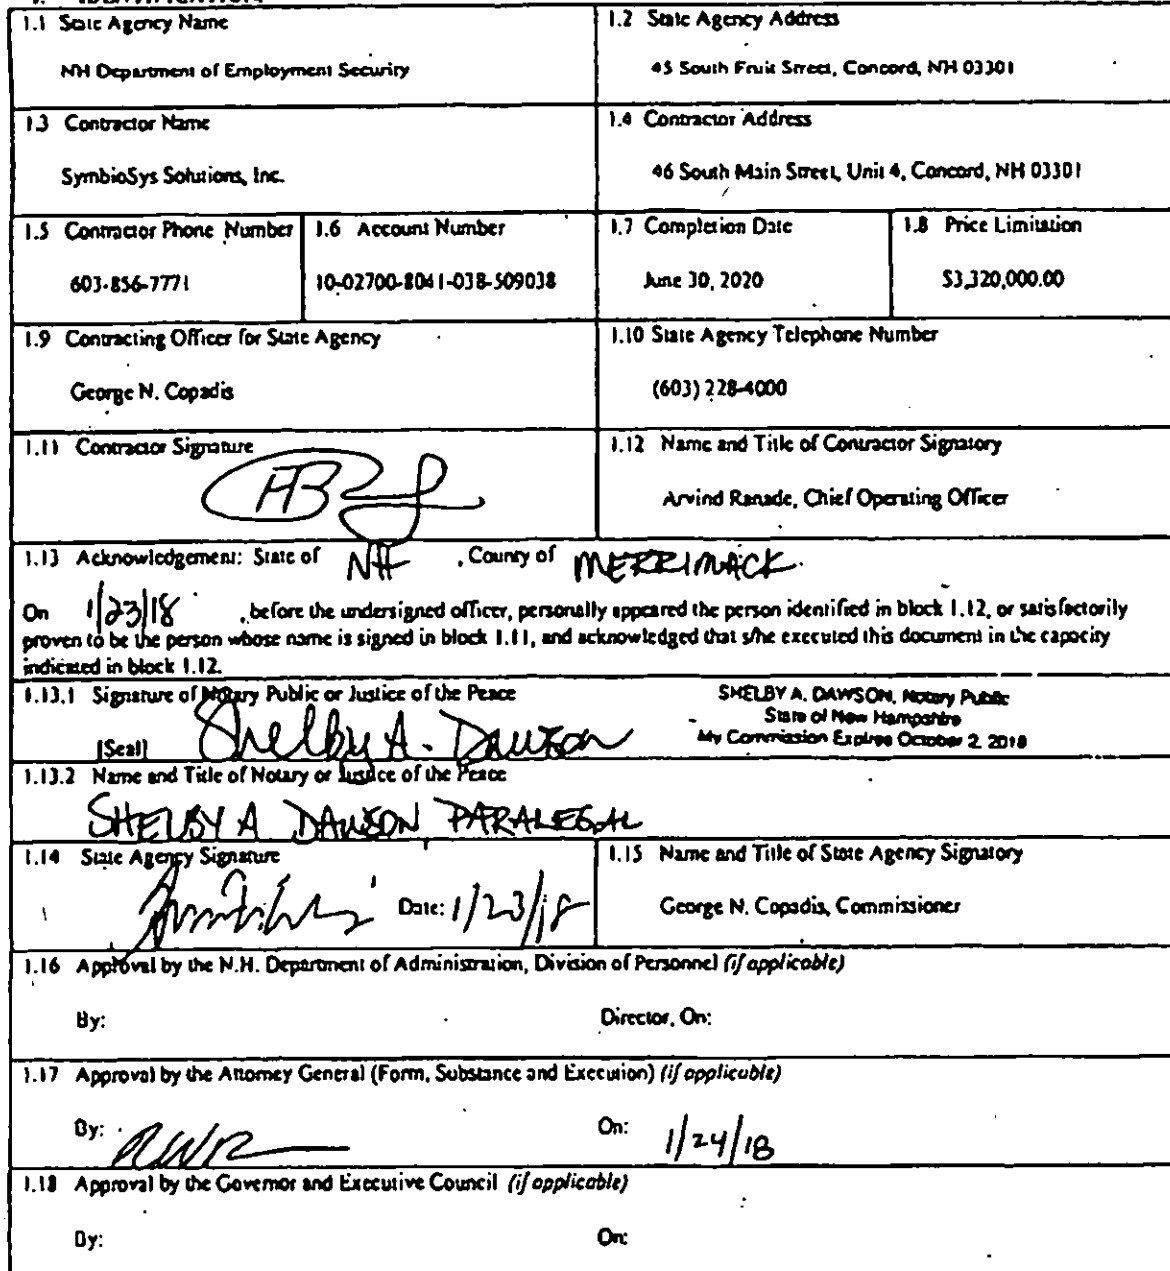 1. IDENTIFICATION
1.1 State Agency Name
1.2 State Agency Address
NH Department of Employment Security
45 South Fruit Street, Concord, NH 03301
1.3 Contractor Name
1.4 Contractor Address
SymbioSys Solutions, Inc.
46 South Main Street, Unit 4, Concord, NH 03301
1.5 Contractor Phone Number
1.6 Account Number
1.7 Completion Date
1.8 Price Limitation
603-856-7771
10-02700-8041-038-509038
June 30, 2020
$3,320,000.00
1.9 Contracting Officer for State Agency
1.10 State Agency Telephone Number
George N. Copadis
(603) 228-4000
1.11 Contractor Signature
1.12 Name and Title of Contractor Signatory
Arvind Ranade, Chief Operating Officer
1.13 Acknowledgement: State of NH , County of MERRIMACK
On 1/23/18 , before the undersigned officer, personally appeared the person identified in block 1.12, or satisfactorily
proven to be the person whose name is signed in block 1.11, and acknowledged that s/he executed this document in the capacity
indicated in block 1.12.
1.13.1 Signature of Notary Public or Justice of the Peace
SHELBY A. DAWSON, Notary Public
State of New Hampshire
My Commission Expires October 2, 2018
[Seal] Shelby A. Dawson
1.13.2 Name and Title of Notary or Justice of the Peace
SHELBY A DAWSON PARALEGAL
1.14 State Agency Signature
1.15 Name and Title of State Agency Signatory
Date: 1/23/18
George N. Copadis, Commissioner
1.16 Approval by the N.H. Department of Administration, Division of Personnel (if applicable)
By:
Director, On:
1.17 Approval by the Attorney General (Form, Substance and Execution) (if applicable)
By:
On: 1/24/18
1.18 Approval by the Governor and Executive Council (if applicable)
By:
On: